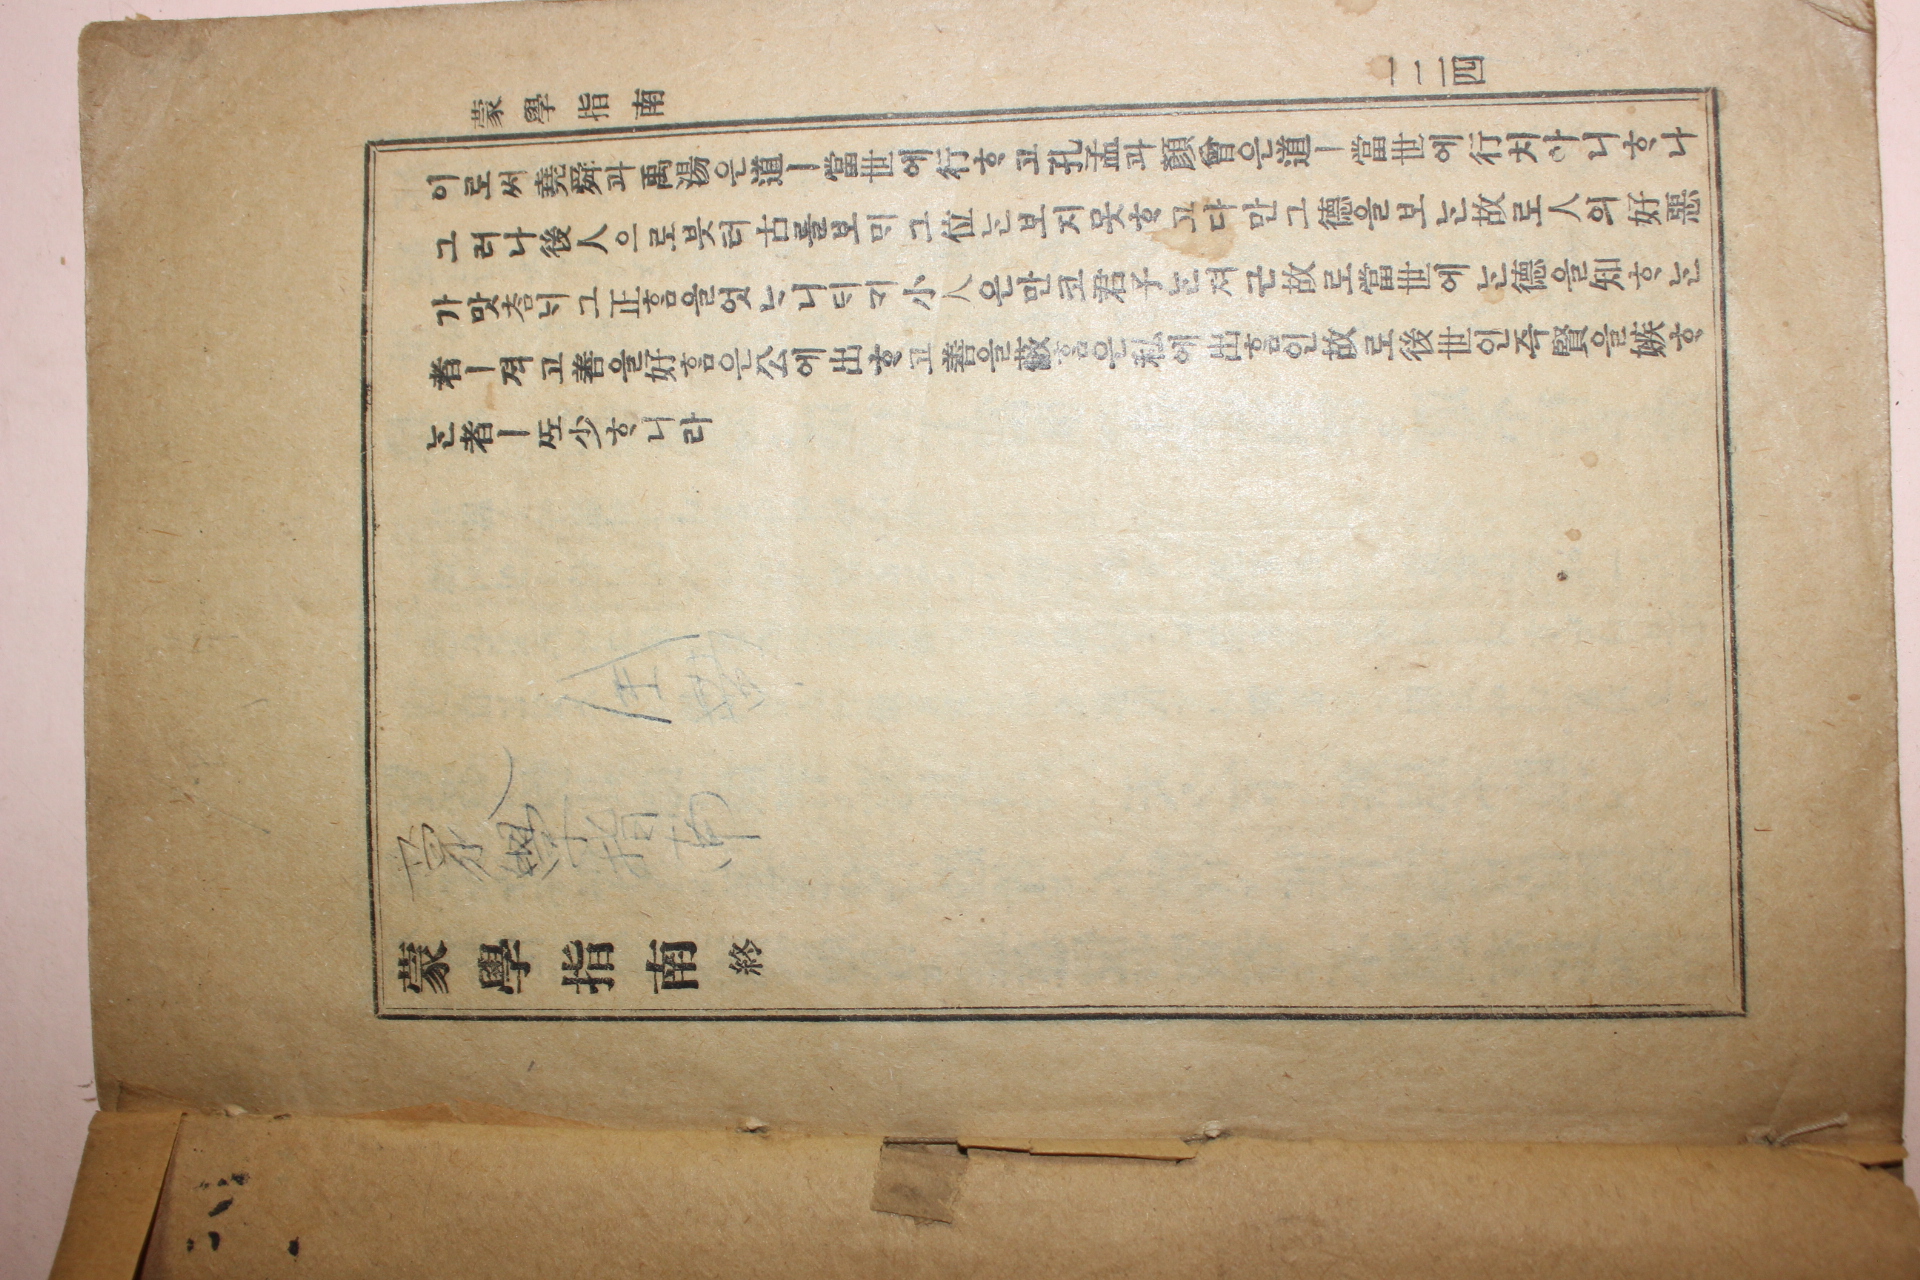 蒙學指南
一二四
이로써堯舜과禹湯은道ㅣ當世에行ᄒᆞ고孔孟과顏曾은道ㅣ當世에行치아니ᄒᆞ나
그러나後人으로븟터古를보ᄆᆡ그位ᄂᆞᆫ보지못ᄒᆞ고다만그德을보ᄂᆞᆫ故로人의好惡
가맛ᄎᆞᆷᄂᆡ그正ᄒᆞᆷ을엇ᄂᆞ니ᄃᆡᄀᆡ小人은만코君子ᄂᆞᆫ져근故로當世에ᄂᆞᆫ德을知ᄒᆞᄂᆞᆫ
者ㅣ젹고善을好ᄒᆞᆷ은公에出ᄒᆞ고善을蔽ᄒᆞᆷ은私에出ᄒᆞᆷ인故로後世인즉賢을嫉ᄒᆞ
ᄂᆞᆫ者ㅣᄯᅩ少ᄒᆞ니라
蒙學指南
蒙學指南 終